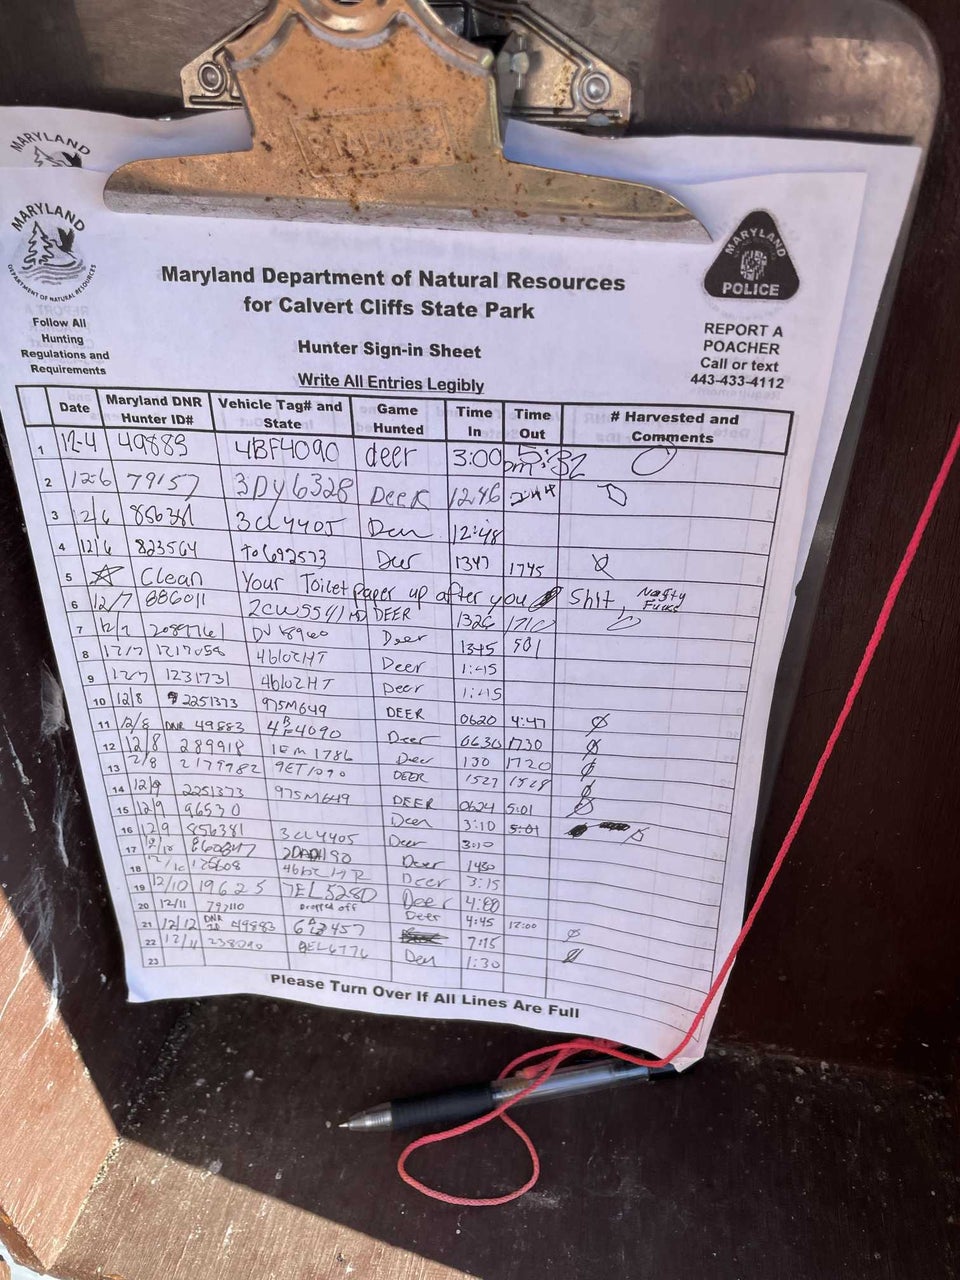 MARYLAND
MARYLAND
DEPARTMENT OF NATURAL RESOURCES
Follow All
Hunting
Regulations and
Requirements
Maryland Department of Natural Resources
for Calvert Cliffs State Park
Hunter Sign-in Sheet
Write All Entries Legibly
MARYLAND
POLICE
REPORT A
POACHER
Call or text
443-433-4112
Date Maryland DNR Hunter ID# Vehicle Tag# and State Game Hunted Time In Time Out # Harvested and Comments
1 12-4 49883 4BF4090 deer 3:00 pm 5:32 0
2 12-6 79157 3DY6328 Deer 12:46
3 12/6 856381 3CL4405 12:48
4 12/6 823564 Deer 1347 1745 Ø
5 Clean Your Toilet paper up after you Shit, Nasty Fucks
6 12/7 886011 2CW5541 MD DEER 1326 1710 0
7 12/7 Deer 1345 501
8 12/7 1217058 Deer 1:45
9 12/7 1231731 Deer 1:45
10 12/8 2251373 975M649 DEER 0620 4:47 Ø
11 12/8 DNR 49883 4BF4090 Deer 0630 1730 Ø
12 12/8 289918 1EM1786 Deer 130 1720 Ø
13 12/8 2179982 9ET1090 DEER 1527 1528 Ø
14 12/9 2251373 975M649 DEER 0624 5:01 Ø
15 12/9 96530 Deer 3:10 5:01 Ø
16 12/9 856381 3CL4405 Deer 3:10
17 Deer 1430
18 12/10 Deer 3:15
19 12/10 19625 7EL5280 Deer 4:00
20 12/11 Dropped off Deer 4:45 12:00
21 12/12 DNR ID 49883 7:15 Ø
22 12/11 238090 8EL6776 1:30
23
Please Turn Over If All Lines Are Full